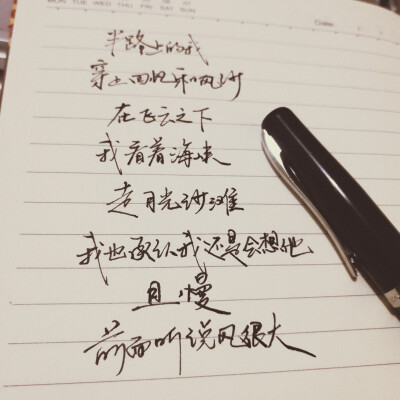 MON TUE WED THU FRI SAT SUN
Date
半路上的我
穿上回忆和
在飞云之下
我看着海来
走月光沙滩
我也承认我还是会想他
且慢
前面听说风很大